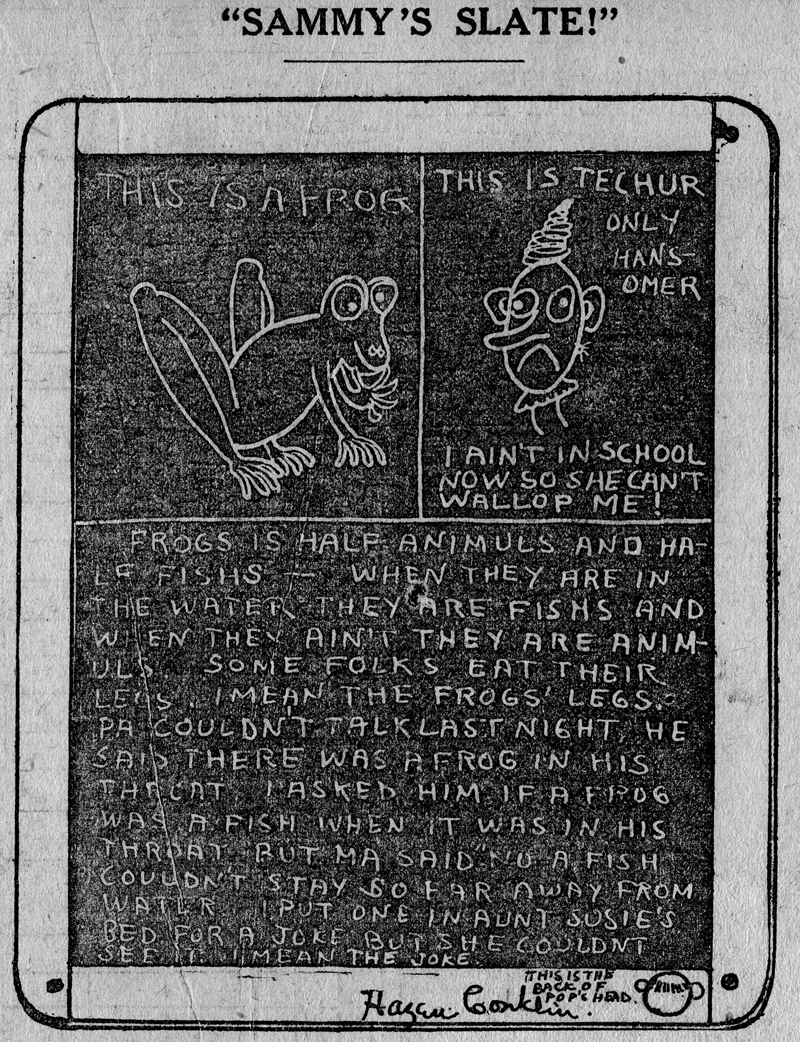 "SAMMY'S SLATE!"
THIS IS A FROG
THIS IS TECHUR
ONLY
HANS-
OMER
I AIN'T IN SCHOOL
NOW SO SHE CAN'T
WALLOP ME!
FROGS IS HALF ANIMULS AND HA-
LF FISHS — WHEN THEY ARE IN
THE WATER THEY ARE FISHS AND
WHEN THEY AIN'T THEY ARE ANIM-
ULS. SOME FOLKS EAT THEIR
LEGS. I MEAN THE FROGS' LEGS.
PA COULDN'T TALK LAST NIGHT, HE
SAID THERE WAS A FROG IN HIS
THROAT. I ASKED HIM IF A FROG
WAS A FISH WHEN IT WAS IN HIS
THROAT BUT MA SAID "NO A FISH
COULDN'T STAY SO FAR AWAY FROM
WATER. I PUT ONE IN AUNT SUSIE'S
BED FOR A JOKE BUT SHE COULDNT
SEE IT. I MEAN THE JOKE.
THIS IS THE
BACK OF
POP'S HEAD.
Hazen Conklin.